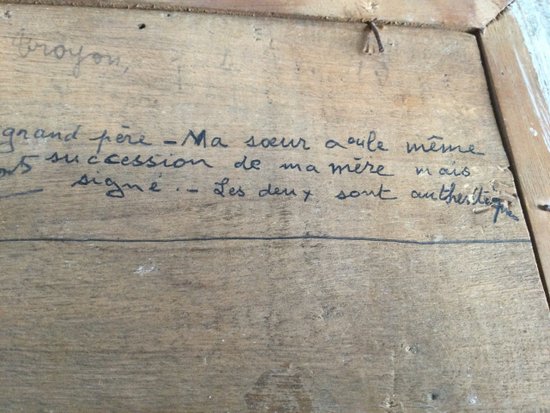 Troyon,
grand père - Ma sœur a eu le même
succession de ma mère mais
signé. - Les deux sont authentiques